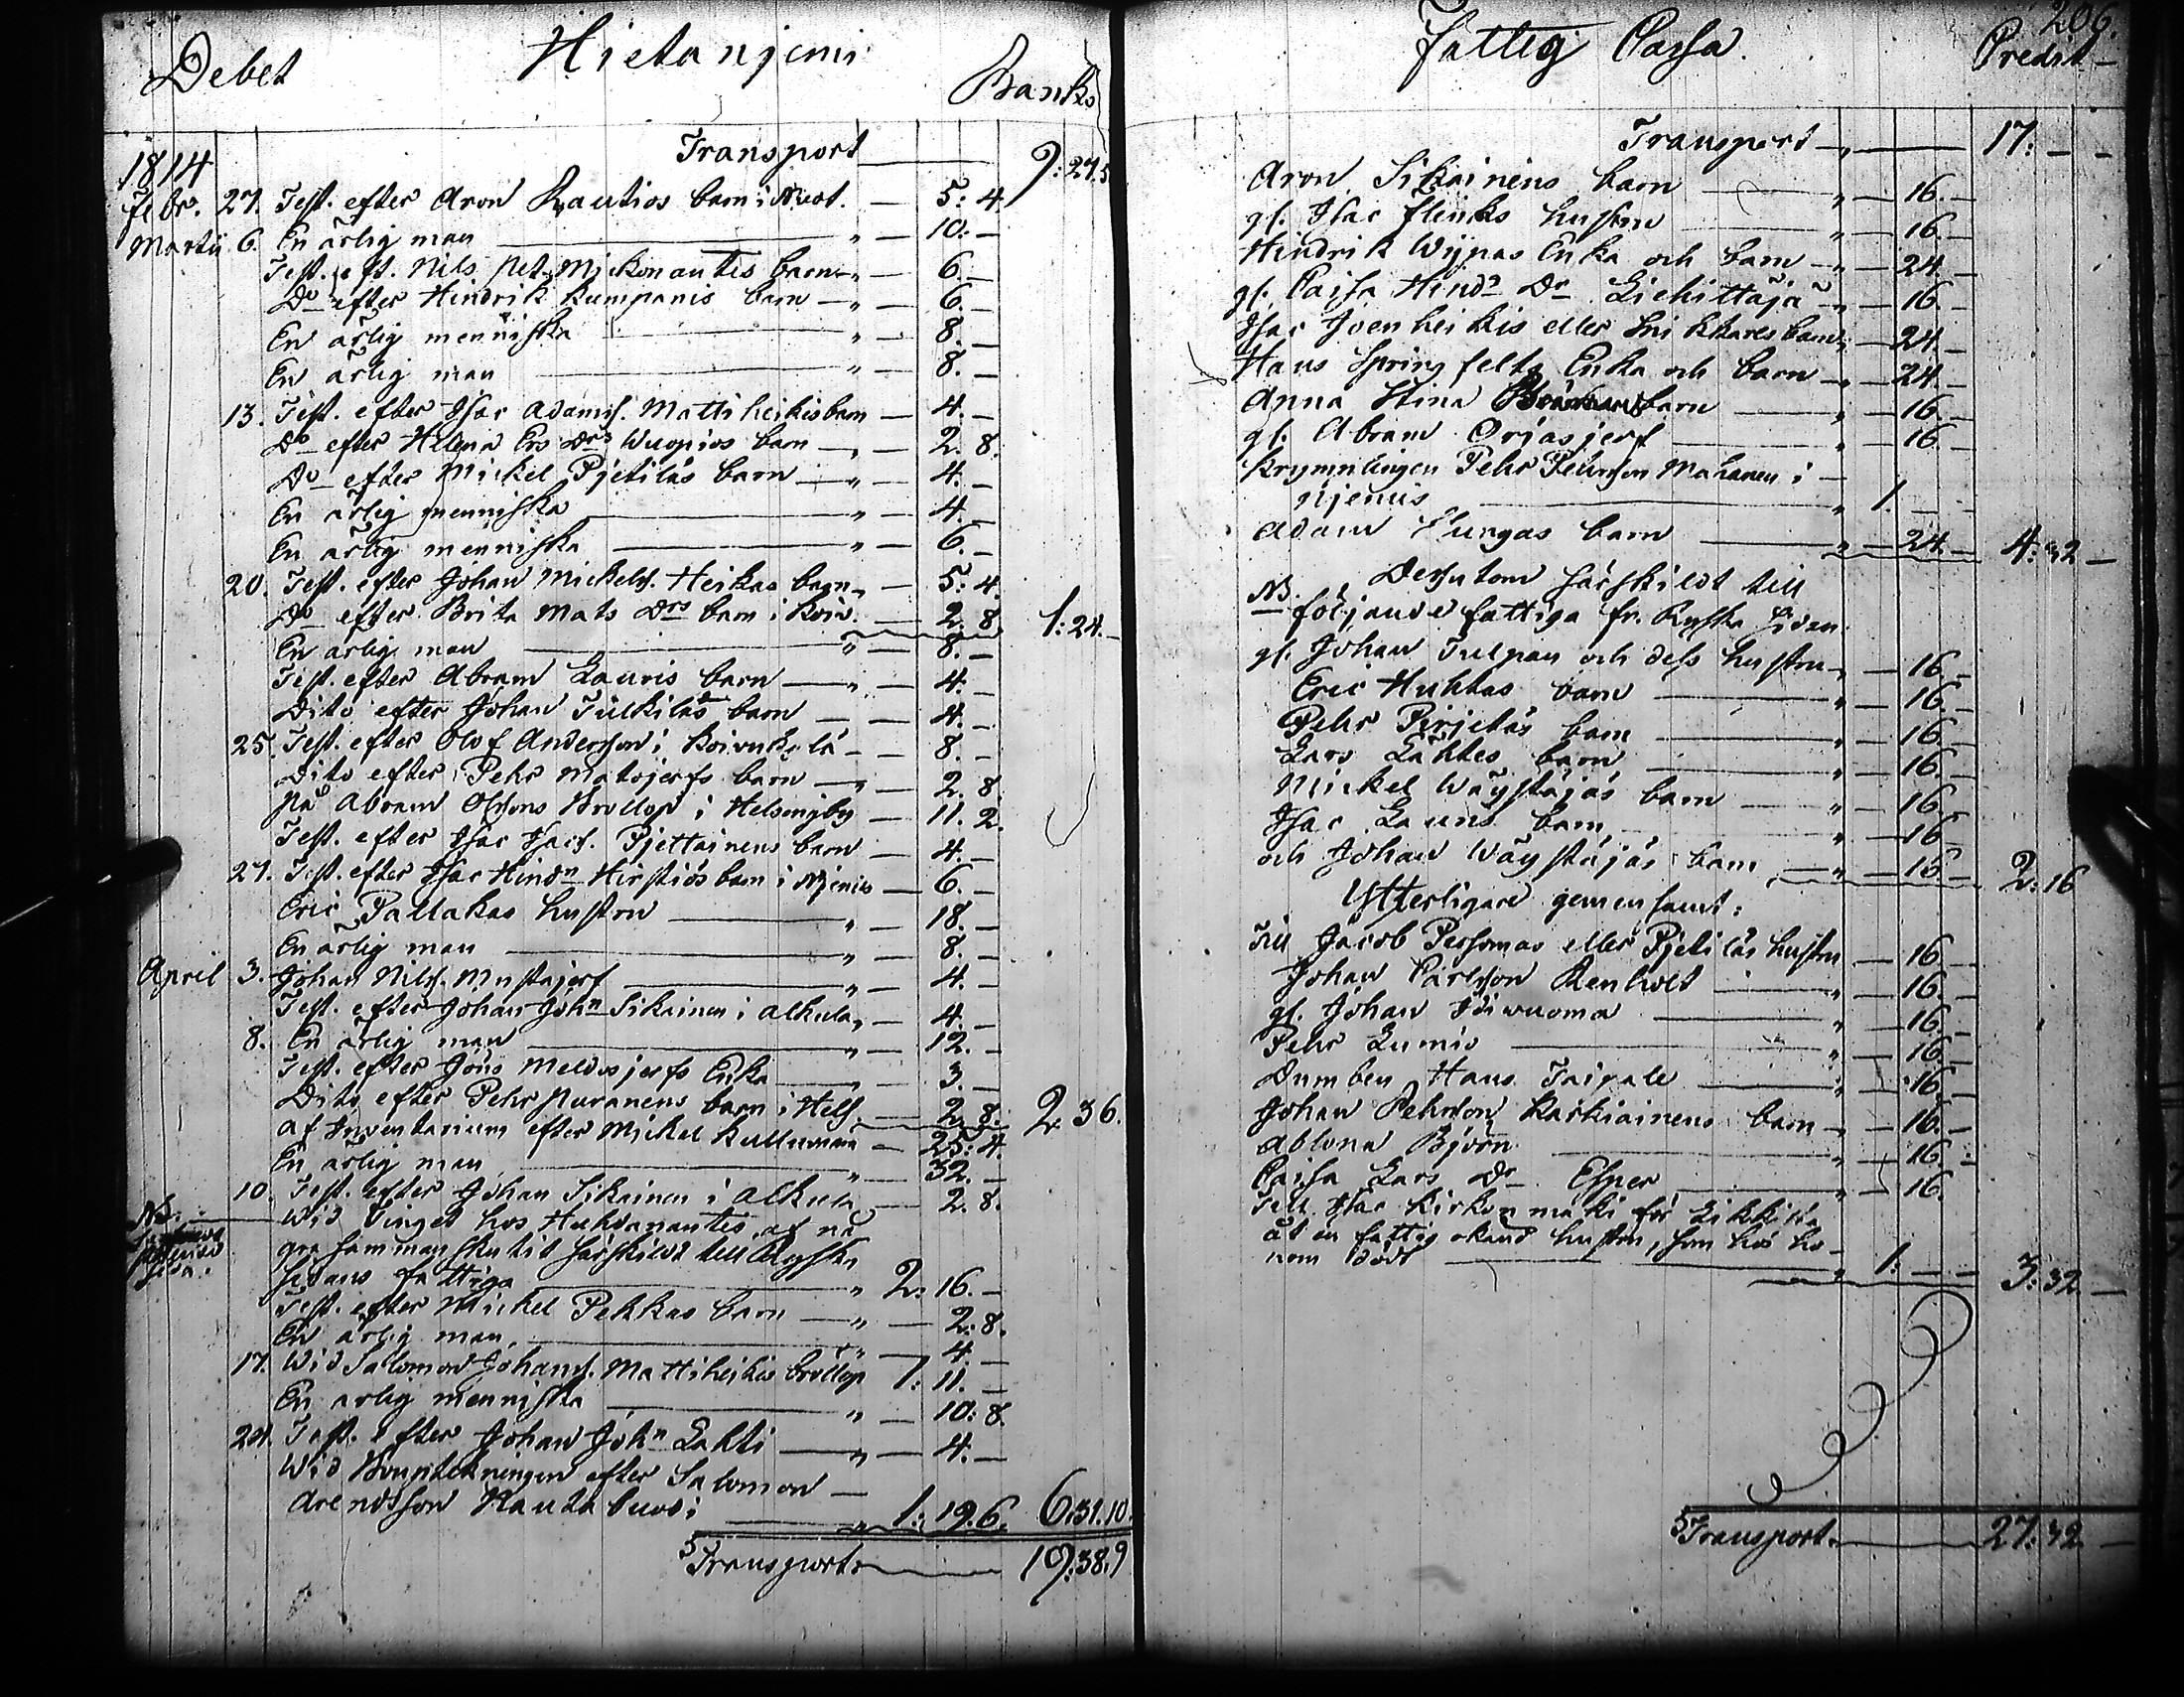 Debet Hietanjemi Banko
1814 Transport 9:27.5
Febr. 27. Test. efter Aron Rautios barn i Niwot. 5:4.
Martii 6. En ärlig man " 10.
Test. eft. Nils Pet. Mickonantis barn " 6.
Do efter Hindrik Kumpanis barn " 6.
En ärlig menniska " 8.
En ärlig man " 8.
13. Test. efter Isac Adams. Mattiheikis barn 4.
Do efter Helena Ers Drs Wuopios barn 2.8.
Do efter Mickel Pjetiläs barn " 4.
En ärlig menniska " 4.
En ärlig menniska " 6.
20. Test. efter Johan Mickels. Heikas barn " 5:4.
Do efter Brita Mats Drs barn i Koiv. 2.8 1:24.
En ärlig man " 8.
Test. efter Abram Lauris barn " 4.
Dito efter Johan Tulkiläs barn 4.
25. Test. efter Olof Andersson i Koivukylä 8.
Dito efter Pehr Matojerfs barn " 2.8
På Abram Olssons Bröllop i Helsingby 11.2.
Test. efter Isac Isacs. Pjettäinens barn 4.
27. Test. efter Isac Hindn Hirstiös barn i Njemis 6.
Eric Pallakas hustru " 18.
En ärlig man " 8.
April 3. Johan Nils. Mustajerf " 4.
Test. efter Johan John Sikainen i Alkula " 4.
8. En ärlig man " 12.
Test. efter Jöns Meldosjerfs Enka " 3.
Dito efter Pehr Puranens barn i Hels. 2.8. 2.36.
Af Inventarium efter Mickel 25:4.
En ärlig man " 32.
10. Test. efter Johan Sikainen i Alkula 2.8.
NB. Wid Tinget hos Huhdanantis af nå
gra sammanskutit särskildt till Ryska
sidans fattiga " 2:16.
Test. efter Mickel Pekkas barn " 2:8.
En ärlig man " 4.
17. Wid Salomon Johans. Mattiheikis bröllop 1:11.
En ärlig menniska " 10:8.
24. Test. efter Johan John Lahti " 4.
Wid efter Salomon
Arendsson 1:19.6. 6:31.10.
Transport 19:38.9
Fattig Cassa. 206.
Credit
Transport " 17:
Aron Sikainens barn " 16.
gl. Isac Flinks hustru " 16.
Hindrik Wijnas Enka och barn " 24.
gl. Caisa Hinds Dr Liehittäjä " 16.
Isac Juenheikis eller Snikkares barn " 24.
Hans Springfelts Enka och barn " 24.
Anna Stina barn " 16.
gl. Abram Orjasjerf " 16.
Krymplingen Pehr Pehrsson Mahanen i
Njemis " 1.
Adam Pungas barn 24. 4:32
NB. Dessutom särskildt till
följande fattiga fr. Ryska sidan
gl. Johan Tulpan och dess hustru " 16.
Eric Huhtas barn " 16.
Pehr Pirjetäs barn " 16.
Lars Lahtes barn " 16.
Mickel Wäystäjäs barn " 16
Isac Lauris barn " 16
och Johan Wäystäjäs barn " 16. 2:16
Ytterligare gemensamt:
Till Jacob Persomas eller Pjetiläs hustru 16
Johan Carlsson Renholt " 16.
gl. Johan " 16.
Pehr Lumio " 16.
Dumben Hans Taipale " 16.
Johan Pehrsson Karkiainens barn " 16.
Ablona Björn " 16.
Caisa Lars Dr Esper " 16.
Till Isac Kirkonmäki för
åt en fattig okänd hustru, som hos ho-
nom dödt " 1: 3:32.
Transport. 27:32.